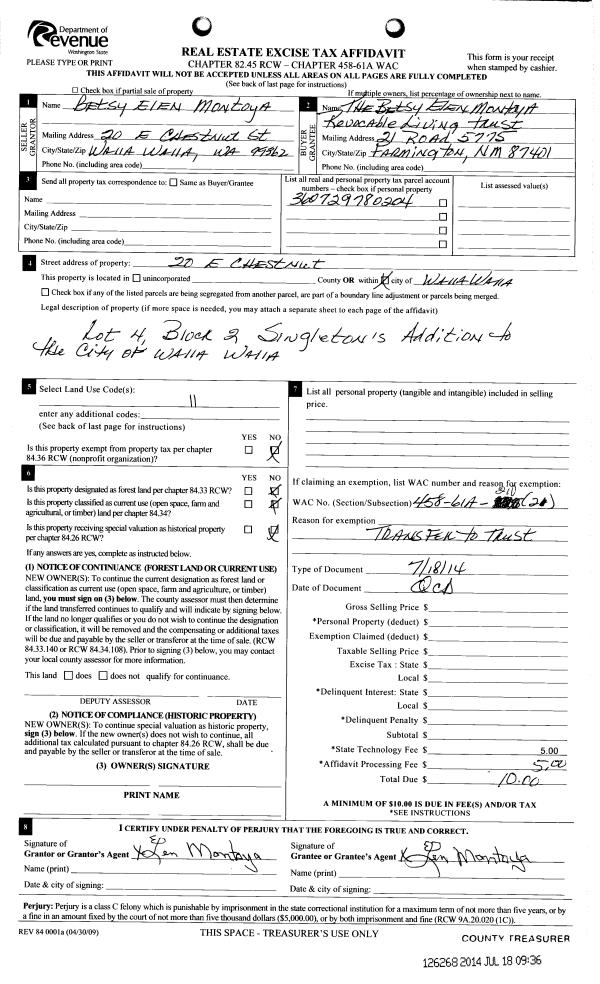 Department of
Revenue
Washington State
PLEASE TYPE OR PRINT
REAL ESTATE EXCISE TAX AFFIDAVIT
CHAPTER 82.45 RCW – CHAPTER 458-61A WAC
This form is your receipt
when stamped by cashier.
THIS AFFIDAVIT WILL NOT BE ACCEPTED UNLESS ALL AREAS ON ALL PAGES ARE FULLY COMPLETED
(See back of last page for instructions)
Check box if partial sale of property
If multiple owners, list percentage of ownership next to name.
1 Name Betsy Elen Montoya
SELLER GRANTOR
Mailing Address 20 E Chestnut St
City/State/Zip Walla Walla, WA 99362
Phone No. (including area code)
2 Name The Betsy Elen Montoya
Revocable Living Trust
BUYER GRANTEE
Mailing Address 21 Road 5775
City/State/Zip Farmington, NM 87401
Phone No. (including area code)
3 Send all property tax correspondence to: Same as Buyer/Grantee
Name
Mailing Address
City/State/Zip
Phone No. (including area code)
List all real and personal property tax parcel account
numbers – check box if personal property
360729780204
List assessed value(s)
4 Street address of property: 20 E Chestnut
This property is located in unincorporated County OR within city of Walla Walla
Check box if any of the listed parcels are being segregated from another parcel, are part of a boundary line adjustment or parcels being merged.
Legal description of property (if more space is needed, you may attach a separate sheet to each page of the affidavit)
Lot 4, Block 2 Singleton's Addition to
the City of Walla Walla
5 Select Land Use Code(s):
11
enter any additional codes:
(See back of last page for instructions)
YES NO
Is this property exempt from property tax per chapter
84.36 RCW (nonprofit organization)?
6 YES NO
Is this property designated as forest land per chapter 84.33 RCW?
Is this property classified as current use (open space, farm and
agricultural, or timber) land per chapter 84.34?
Is this property receiving special valuation as historical property
per chapter 84.26 RCW?
If any answers are yes, complete as instructed below.
(1) NOTICE OF CONTINUANCE (FOREST LAND OR CURRENT USE)
NEW OWNER(S): To continue the current designation as forest land or
classification as current use (open space, farm and agriculture, or timber)
land, you must sign on (3) below. The county assessor must then determine
if the land transferred continues to qualify and will indicate by signing below.
If the land no longer qualifies or you do not wish to continue the designation
or classification, it will be removed and the compensating or additional taxes
will be due and payable by the seller or transferor at the time of sale. (RCW
84.33.140 or RCW 84.34.108). Prior to signing (3) below, you may contact
your local county assessor for more information.
This land does does not qualify for continuance.
DEPUTY ASSESSOR DATE
(2) NOTICE OF COMPLIANCE (HISTORIC PROPERTY)
NEW OWNER(S): To continue special valuation as historic property,
sign (3) below. If the new owner(s) does not wish to continue, all
additional tax calculated pursuant to chapter 84.26 RCW, shall be due
and payable by the seller or transferor at the time of sale.
(3) OWNER(S) SIGNATURE
PRINT NAME
7 List all personal property (tangible and intangible) included in selling
price.
If claiming an exemption, list WAC number and reason for exemption:
WAC No. (Section/Subsection) 458-61A-
Reason for exemption
Transfer to Trust
Type of Document 7/18/14
Date of Document QCD
Gross Selling Price $
*Personal Property (deduct) $
Exemption Claimed (deduct) $
Taxable Selling Price $
Excise Tax : State $
Local $
*Delinquent Interest: State $
Local $
*Delinquent Penalty $
Subtotal $
*State Technology Fee $ 5.00
*Affidavit Processing Fee $ 5.00
Total Due $ 10.00
A MINIMUM OF $10.00 IS DUE IN FEE(S) AND/OR TAX
*SEE INSTRUCTIONS
8 I CERTIFY UNDER PENALTY OF PERJURY THAT THE FOREGOING IS TRUE AND CORRECT.
Signature of
Grantor or Grantor's Agent Elen Montoya
Name (print)
Date & city of signing:
Signature of
Grantee or Grantee's Agent Elen Montoya
Name (print)
Date & city of signing:
Perjury: Perjury is a class C felony which is punishable by imprisonment in the state correctional institution for a maximum term of not more than five years, or by
a fine in an amount fixed by the court of not more than five thousand dollars ($5,000.00), or by both imprisonment and fine (RCW 9A.20.020 (1C)).
REV 84 0001a (04/30/09)
THIS SPACE - TREASURER'S USE ONLY
COUNTY TREASURER
126268 2014 JUL 18 09:36